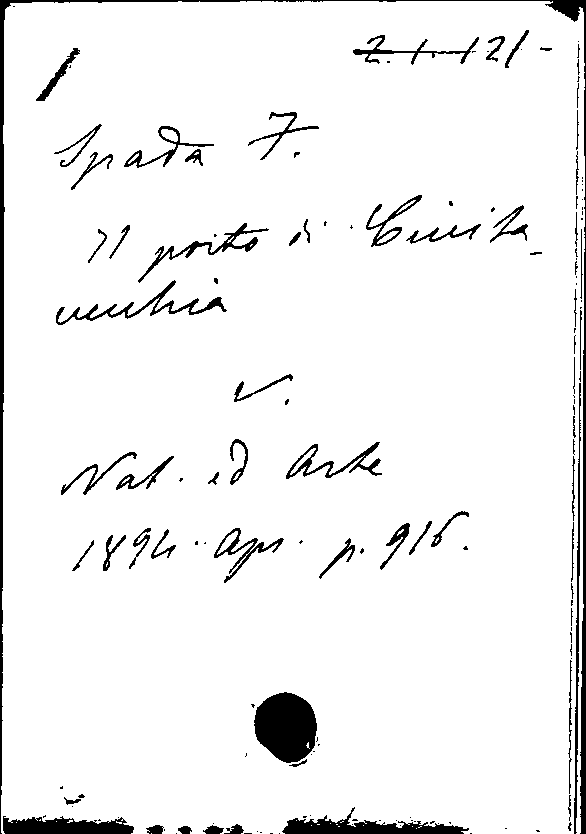 2. 1. 121-
Spada F.
Il porto di Civita-
vecchia
v.
Nat. ed Arte
1894. Apr. p. 916.